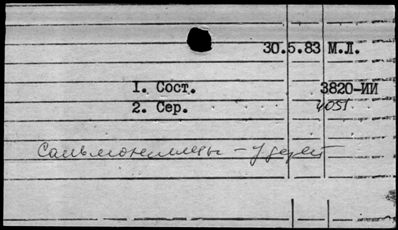 30.5.83 М.Л.
1. Сост. 3820-ИИ
2. Сер. 4051
Сальмонеллезы - у детей